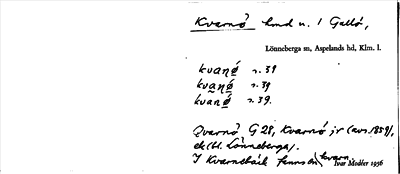 Kvarnö lmd u. 1 Gallö,
Lönneberga sn, Aspelands hd, Klm. l.
kvaṉǿ r. 39
kva̱ṉǿ r. 39
kvaṉǿ r. 39.
Qvarnö G 28, Kvarnö jr (avs. 1859),
ek (bl. Lönneberga).
I Kvarnebäck finns en kvarn.
Ivar Modéer 1936